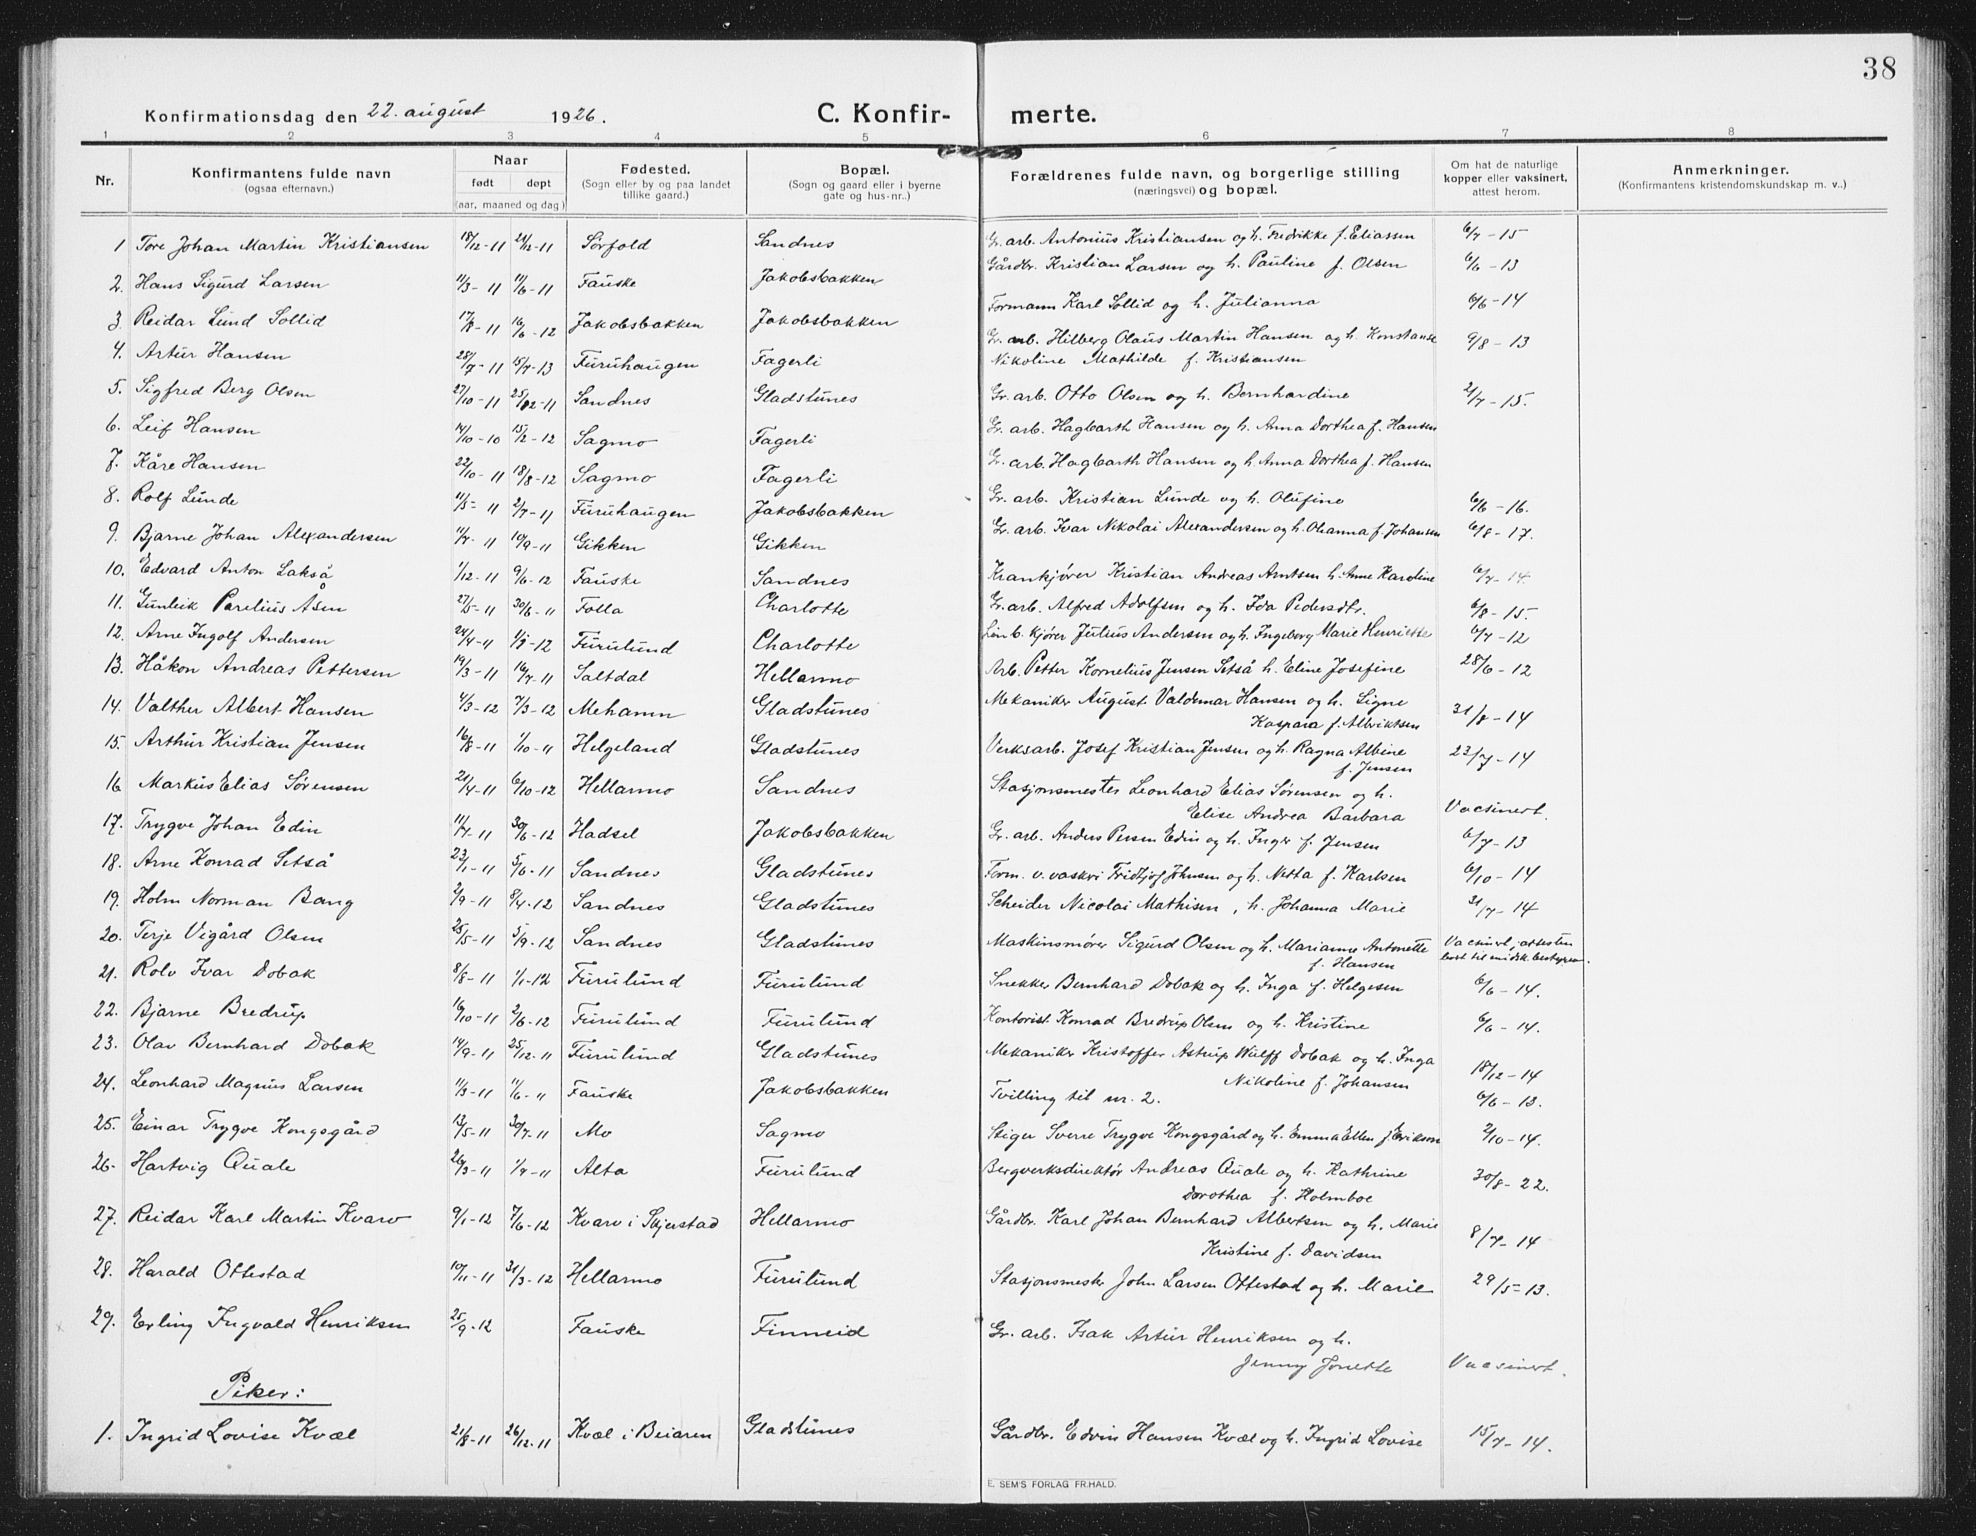 38
Konfirmationsdag den 22. august 1926. C. Konfir- merte.
1 2 3 4 5 6 7 8
Nr. Konfirmantens fulde navn (ogsaa efternavn.) Naar født døpt (aar, maaned og dag) Fødested. (Sogn eller by og paa landet tillike gaard.) Bopæl. (Sogn og gaard eller i byerne gate og hus-nr..) Forældrenes fulde navn, og borgerlige stilling (næringsvei) og bopæl. Om hat de naturlige kopper eller vaksinert, attest herom. Anmerkninger. (Konfirmantens kristendomskundskap m. v..)
1 Tore Johan Martin Kristiansen 18/12-11 21/12-11 Sørfold Sandnes Gr. arb. Antonius Kristiansen og h. Fredrikke f. Eliassen 6/7-15
2. Hans Sigurd Larsen 11/3-11 11/6-11 Fauske Jakobsbakken Gårdbr. Kristian Larsen og h. Pauline f. Olsen 6/6-13
3. Reidar Lund Sollid 17/8-11 16/6-12 Jakobsbakken Jakobsbakken Formann Karl Sollid og h. Julianna 6/6-14
4. Artur Hansen 28/7-11 15/7-13 Furuhaugen Fagerli Gr. arb. Hilberg Olaus Martin Hansen og h. Konstanse
Nikoline Mathilde f. Kristiansen 9/8-13
5. Sigfred Berg Olsen 27/10-11 25/12-11 Sandnes Gladstunes Gr. arb. Otto Olsen og h. Bernhardine 2/7-15.
6. Leif Hansen 14/10-10 15/2-12 Sagmo Fagerli Gr. arb. Hagbarth Hansen og h. Anna Dorthea f. Hansen
7. Kåre Hansen 22/10-11 18/8-12 Sagmo Fagerli Gr. arb. Hagbarth Hansen og h. Anna Dorthea f. Hansen
8. Rolf Lunde 11/5-11 2/7-11 Furuhaugen Jakobsbakken Gr. arb. Kristian Lunde og h. Olufine 6/6-16.
9. Bjarne Johan Alexandersen 11/7-11 10/9-11 Gikken Gikken Gr. arb. Ivar Nikolai Alexandersen og h. Olianna f. Johansen 6/8-17.
10. Edvard Anton Lakså 1/12-11 9/6-12 Fauske Sandnes Krankjører Kristian Andreas Arntsen h. Anne Karoline 6/7-14.
11. Gunleik Parelius Åsen 27/5-11 30/6-11 Folla Charlotte Gr. arb. Alfred Adolfsen og h. Ida Pedersdtr. 6/8-15.
12. Arne Ingolf Andersen 24/4-11 1/3-12 Furulund Charlotte kjører Julius Andersen og h. Ingeborg Marie Henriette 6/7-12
13. Håkon Andreas Pettersen 19/3-11 16/7-11 Saltdal Hellarmo Arb. Petter Kornelius Jensen Setså h. Eline Josefine 28/6-12
14. Valther Albert Hansen 4/3-12 7/3-12 Mehamn Gladstunes Mekaniker August Valdemar Hansen og h. Signe
Kaspara f. Albriktsen 31/8-14
15. Arthur Kristian Jensen 16/8-11 1/10-11 Helgeland Gladstunes Verksarb. Josef Kristian Jensen og h. Ragna Albine
f. Jensen 23/7-14
16 Markus Elias Sørensen 21/4-11 6/10-12 Hellarmo Sandnes Stasjonsmester Leonhard Elias Sørensen og h.
Elise Andrea Barbara Vacsinert.
17. Trygve Johan Edin 11/4-11 30/6-12 Hadsel Jakobsbakken Gr. arb. Anders Persen Edin og h. Inger f. Jensen 6/7-13
18. Arne Konrad Setså 23/1-11 5/6-11 Sandnes Gladstunes Form. v. vaskri Fridtjof Johnsen og h. Netta f. Karlsen 6/10-14
19. Holm Norman Bang 2/9-11 8/4-12 Sandnes Gladstunes Scheider Nicolai Mathisen, h. Johanna Marie 31/7-14
20. Terje Vigård Olsen 25/5-11 5/9-12 Sandnes Gladstunes Maskinsmører Sigurd Olsen og h. Marianne Antonette
f. Hansen Vacsinert, attesten
21. Rolv Ivar Dobak 8/8-11 1/1-12 Furulund Furulund Snekker Bernhard Dobak og h. Inga f. Helgesen 6/6-14.
22. Bjarne Bredrup 16/10-11 2/6-12 Furulund Furulund Kontorist Konrad Bredrup Olsen og h. Kristine 6/6-14.
23. Olav Bernhard Dobak 14/9-11 25/12-11 Furulund Gladstunes Mekaniker Kristoffer Astrup Wulff Dobak og h. Inga
Nikoline f. Johansen 18/12-14
24. Leonhard Magnus Larsen 11/3-11 11/6-11 Fauske Jakobsbakken Tvilling til nr. 2. 6/6-13.
25. Einar Trygve Kongsgård 13/5-11 30/7-11 Mo Sagmo Stiger Sverre Trygve Kongsgård og h. Emma Ellen f. Erikson 2/10-14.
26. Hartvig Quale 26/3-11 1/7-11 Alta Furulund Bergverksdirektør Andreas Quale og h. Kathrine
Dorothea f. Holmboe 30/8-22.
27. Reidar Karl Martin Kvarv 9/1-12 7/6-12 Kvarv i Skjerstad Hellarmo Gårdbr. Karl Johan Bernhard Albertsen og h. Marie
Kristine f. Davidsen 8/7-14
28. Harald Ottestad 10/11-11 31/3-12 Hellarmo Furulund Stasjonsmester John Larsen Ottestad og h. Marie 29/5-13.
29. Erling Ingvald Henriksen 25/9-12 Fauske Finneid Gr. arb. Isak Artur Henriksen og h.
Jenny Jonette Vacsinert.
Piker:
1. Ingrid Lovise Kvæl 21/8-11 26/12-11 Kvæl i Beiaren Gladstunes Gårdbr. Edvin Hansen Kvæl og h. Ingrid Lovise 15/7-14.
E. SEM'S FORLAG FR.HALD.